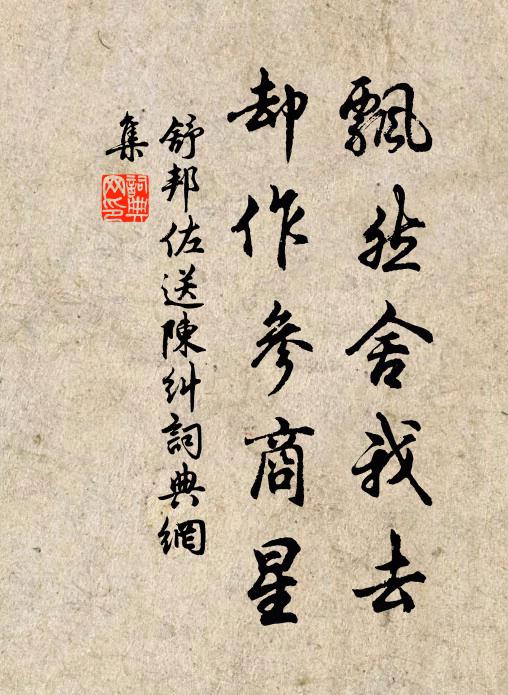 飄然舍我去
却作參商星
舒邦佐送陳糾詞典網
集
詞典
网印